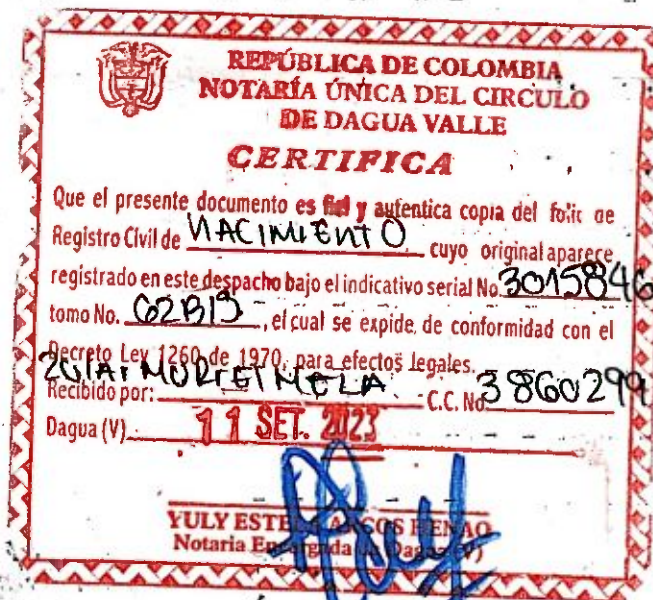 REPÚBLICA DE COLOMBIA
NOTARÍA ÚNICA DEL CIRCULO
DE DAGUA VALLE
CERTIFICA
Que el presente documento es fiel y autentica copia del folio de
Registro Civil de NACIMIENTO cuyo original aparece
registrado en este despacho bajo el indicativo serial No. 3015846
tomo No. 62BIS, el cual se expide de conformidad con el
Decreto Ley 1260 de 1970, para efectos legales.
Recibido por: C.C. No. 3860299
Dagua (V) 11 SET. 2023
YULY ESTELA ARCOS HENAO
Notaria Encargada de Dagua (V)